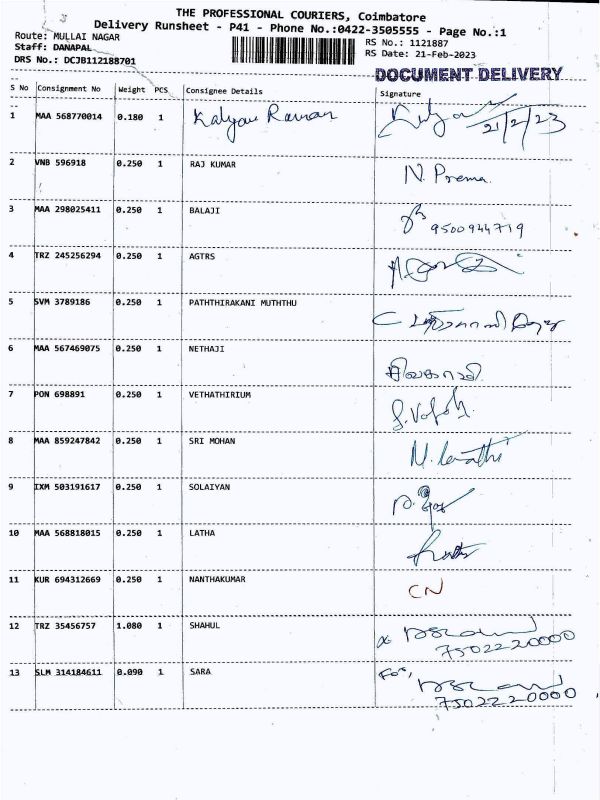 THE PROFESSIONAL COURIERS, Coimbatore
Delivery Runsheet - P41 - Phone No.:0422-3505555 - Page No.:1
Route: MULLAI NAGAR
RS No.: 1121887
Staff: DANAPAL
RS Date: 21-Feb-2023
DRS No.: DCJB112188701
DOCUMENT DELIVERY
S No Consignment No Weight PCS Consignee Details Signature
1 MAA 568770014 0.180 1 Kalyan Raman 21/2/23
2 VNB 596918 0.250 1 RAJ KUMAR N. Prema.
3 MAA 298025411 0.250 1 BALAJI 9500944719
4 TRZ 245256294 0.250 1 AGTRS
5 SVM 3789186 0.250 1 PATHTHIRAKANI MUTHTHU
6 MAA 567469075 0.250 1 NETHAJI
7 PON 698891 0.250 1 VETHATHIRIUM
8 MAA 859247842 0.250 1 SRI MOHAN
9 IXM 503191617 0.250 1 SOLAIYAN
10 MAA 568818015 0.250 1 LATHA
11 KUR 694312669 0.250 1 NANTHAKUMAR CN
12 TRZ 35456757 1.080 1 SHAHUL 7502220000
13 SLM 314184611 0.090 1 SARA For, 7502220000